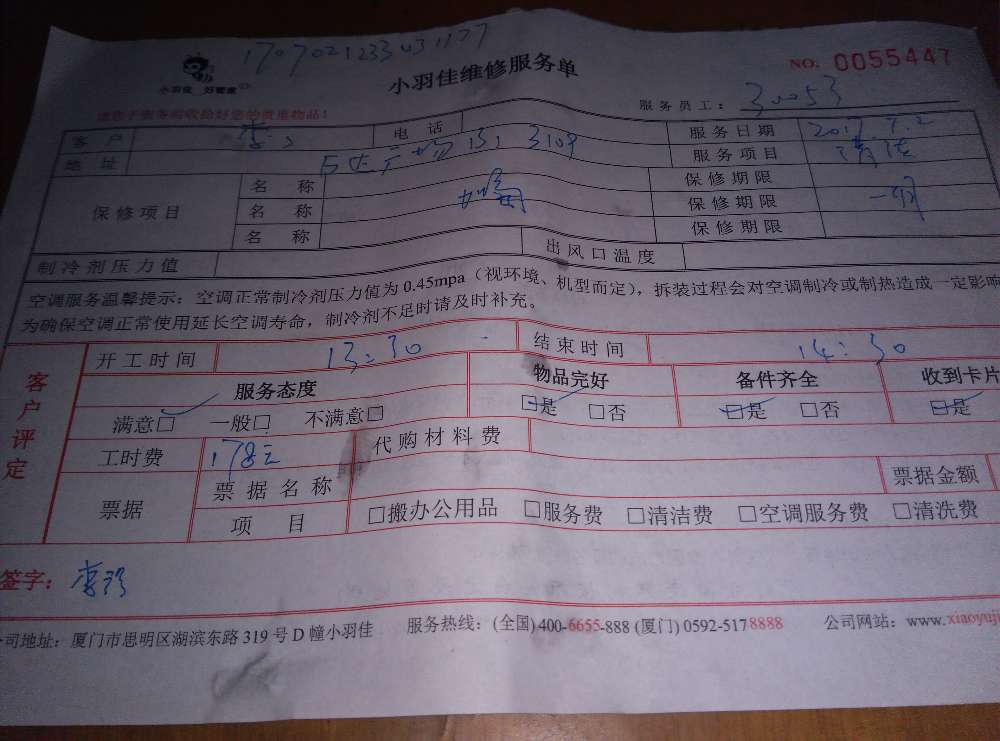 小羽佳维修服务单
NO: 0055447
小羽佳 好管家
请您于服务前收拾好您的贵重物品!
服务员工: 30053
客户 电话 服务日期 2017.7.2
地址 服务项目 清洗
保修项目 名称 保修期限
名称 保修期限
名称 保修期限
制冷剂压力值 出风口温度
空调服务温馨提示:空调正常制冷剂压力值为0.45mpa(视环境、机型而定),拆装过程会对空调制冷或制热造成一定影响
为确保空调正常使用延长空调寿命,制冷剂不足时请及时补充。
客户评定
开工时间 13:30 结束时间 14:30
服务态度 物品完好 备件齐全 收到卡片
满意□ 一般□ 不满意□ □是 □否 □是 □否 □是
工时费 178元 代购材料费
票据 票据名称 票据金额
项目 □搬办公用品 □服务费 □清洁费 □空调服务费 □清洗费
签字:
司地址:厦门市思明区湖滨东路319号D幢小羽佳 服务热线:(全国)400-6655-888 (厦门) 0592-5178888 公司网站:www.xiaoyuji